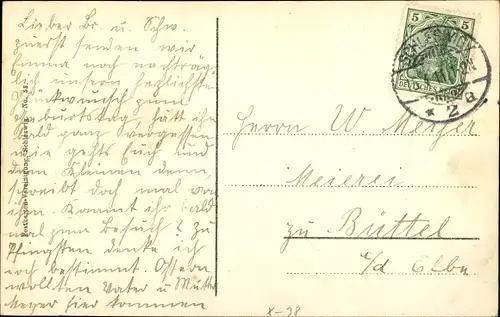 Lieber Br. u. Schw.
zuerst senden wir
Emma noch nachträg-
lich unsern herzlichsten
Glückwunsch zum
Geburtstag, hätt ihn
bald ganz vergessen
wie gehts Euch und
dem Kleinen denn,
schreibt doch mal von
ihn. Kommt ihr bald
mal zum Besuch? Zu
Pfingsten denke ich
doch bestimmt. Ostern
wollten Vater u Mutter
Meyer hier kommen
Herrn W Meyer
Meierei
zu Büttel
a/d Elbe
5 5
DEUTSCHES REICH
SCHLESWIG
* 2a
X-38